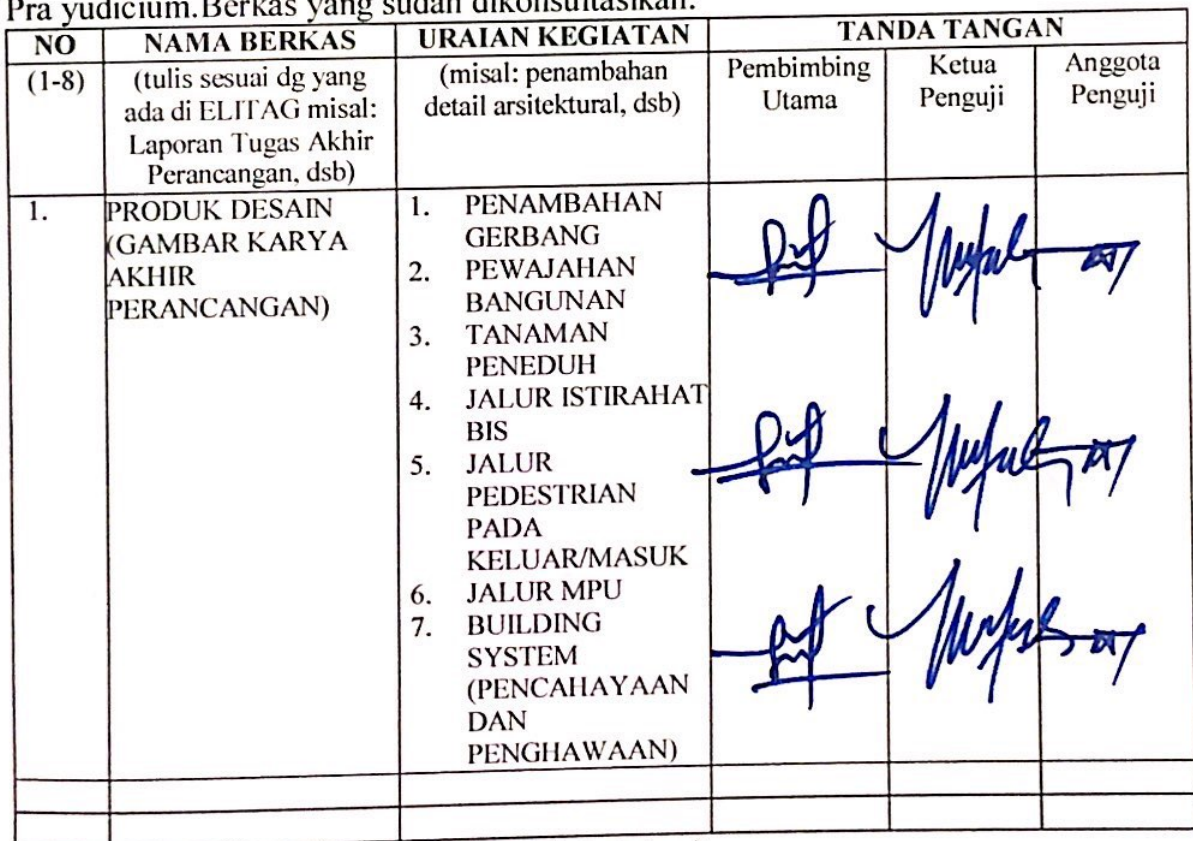 Pra yudicium.Berkas yang sudah dikonsultasikan:
NO NAMA BERKAS URAIAN KEGIATAN TANDA TANGAN
(1-8) (tulis sesuai dg yang ada di ELITAG misal: Laporan Tugas Akhir Perancangan, dsb) (misal: penambahan detail arsitektural, dsb) Pembimbing Utama Ketua Penguji Anggota Penguji
1. PRODUK DESAIN
(GAMBAR KARYA
AKHIR
PERANCANGAN)
1. PENAMBAHAN
GERBANG
2. PEWAJAHAN
BANGUNAN
3. TANAMAN
PENEDUH
4. JALUR ISTIRAHAT
BIS
5. JALUR
PEDESTRIAN
PADA
KELUAR/MASUK
6. JALUR MPU
7. BUILDING
SYSTEM
(PENCAHAYAAN
DAN
PENGHAWAAN)